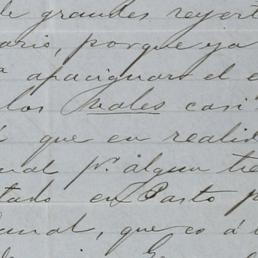 de grandes reyert
ario, porque ya
a apaciguaro el e
los vales casi
que en realid
nal pr. algun tie
tado en Pasto p
anal, que es á